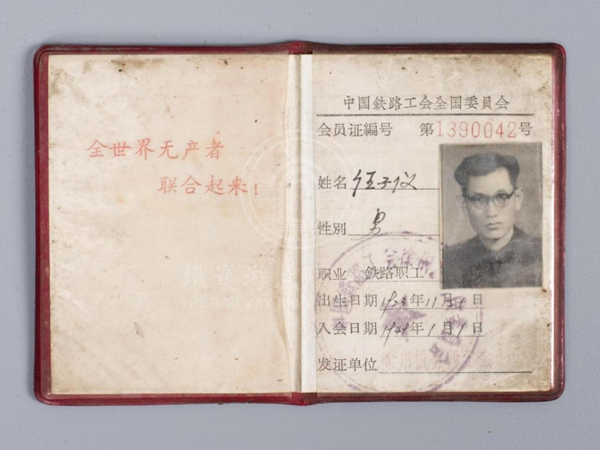 全世界无产者
联合起来！
中国鉄路工会全国委員会
会员证編号 第1390042号
姓名 伍子仪
性别 男
职业 鉄路职工
出生日期 年11月 日
入会日期 年1月1日
发证单位